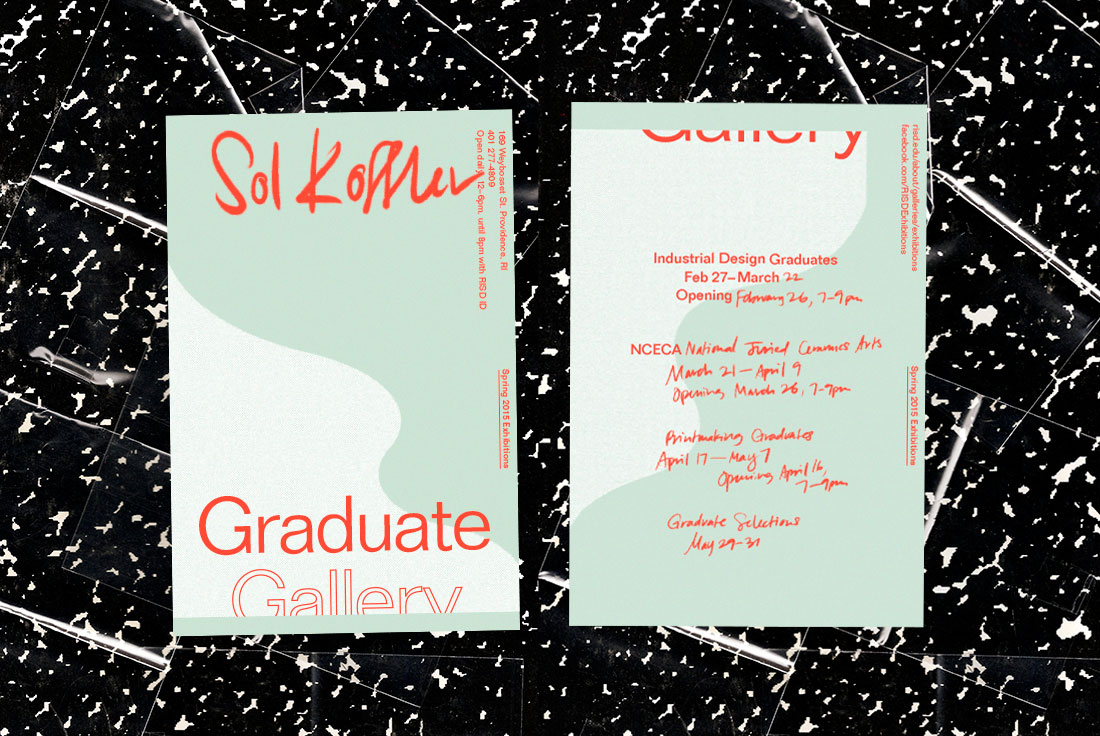 Sol Koffler
169 Weybosset St. Providence, RI
401 277-4809
Open daily, 12–6pm, until 8pm with RISD ID
Spring 2015 Exhibitions
Graduate
Gallery
Gallery
risd.edu/about/galleries/exhibitions
facebook.com/RISDExhibitions
Industrial Design Graduates
Feb 27–March 22
Opening February 26, 7–9pm
NCECA National Juried Ceramics Arts
March 21—April 9
Opening, March 26, 7–9pm
Printmaking Graduates
April 17—May 7
Opening April 16,
7–9pm
Graduate Selections
May 29–31
Spring 2015 Exhibitions